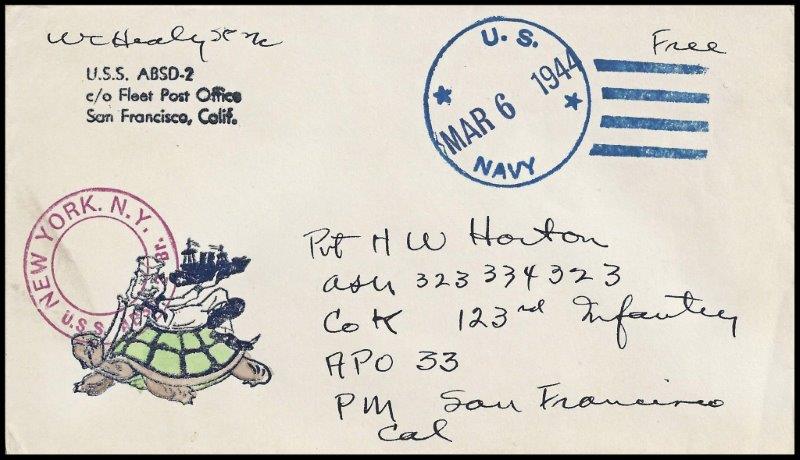 WC Healy
U.S.S. ABSD-2
c/o Fleet Post Office
San Francisco, Calif.
U.S.
MAR 6 1944
NAVY
Free
NEW YORK. N.Y.
U.S.S.
Pvt H W Horton
ASN 323334323
Co K 123rd Infantry
APO 33
PM San Francisco
Cal